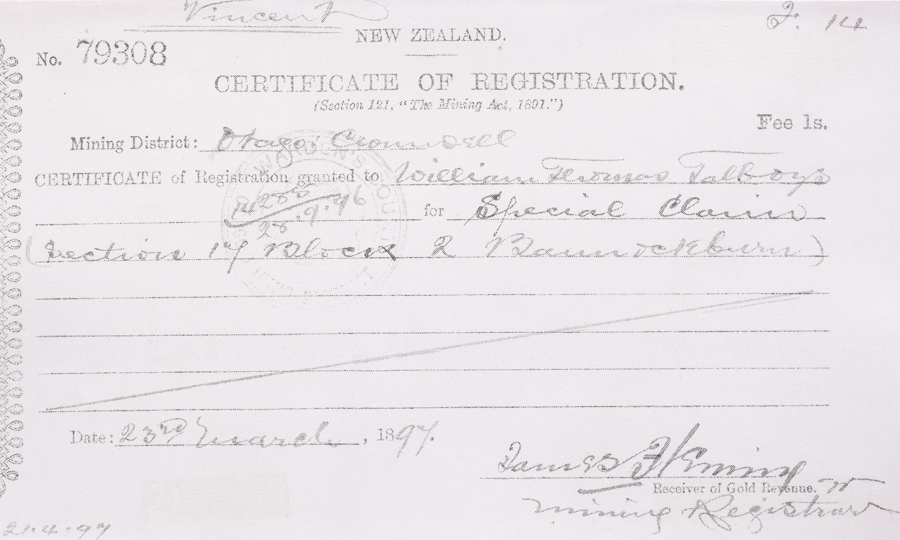 Vincent
2. 14
NEW ZEALAND.
No. 79308
CERTIFICATE OF REGISTRATION.
(Section 121, "The Mining Act, 1891.")
Fee 1s.
Mining District: Otago, Cromwell
CERTIFICATE of Registration granted to William Thomas Talboys
28.9.96 for Special Claim
(Section 17 Block 2 Bannockburn)
Date: 23rd March, 1897.
James Fleming
Receiver of Gold Revenue.
Mining Registrar
21.4.97